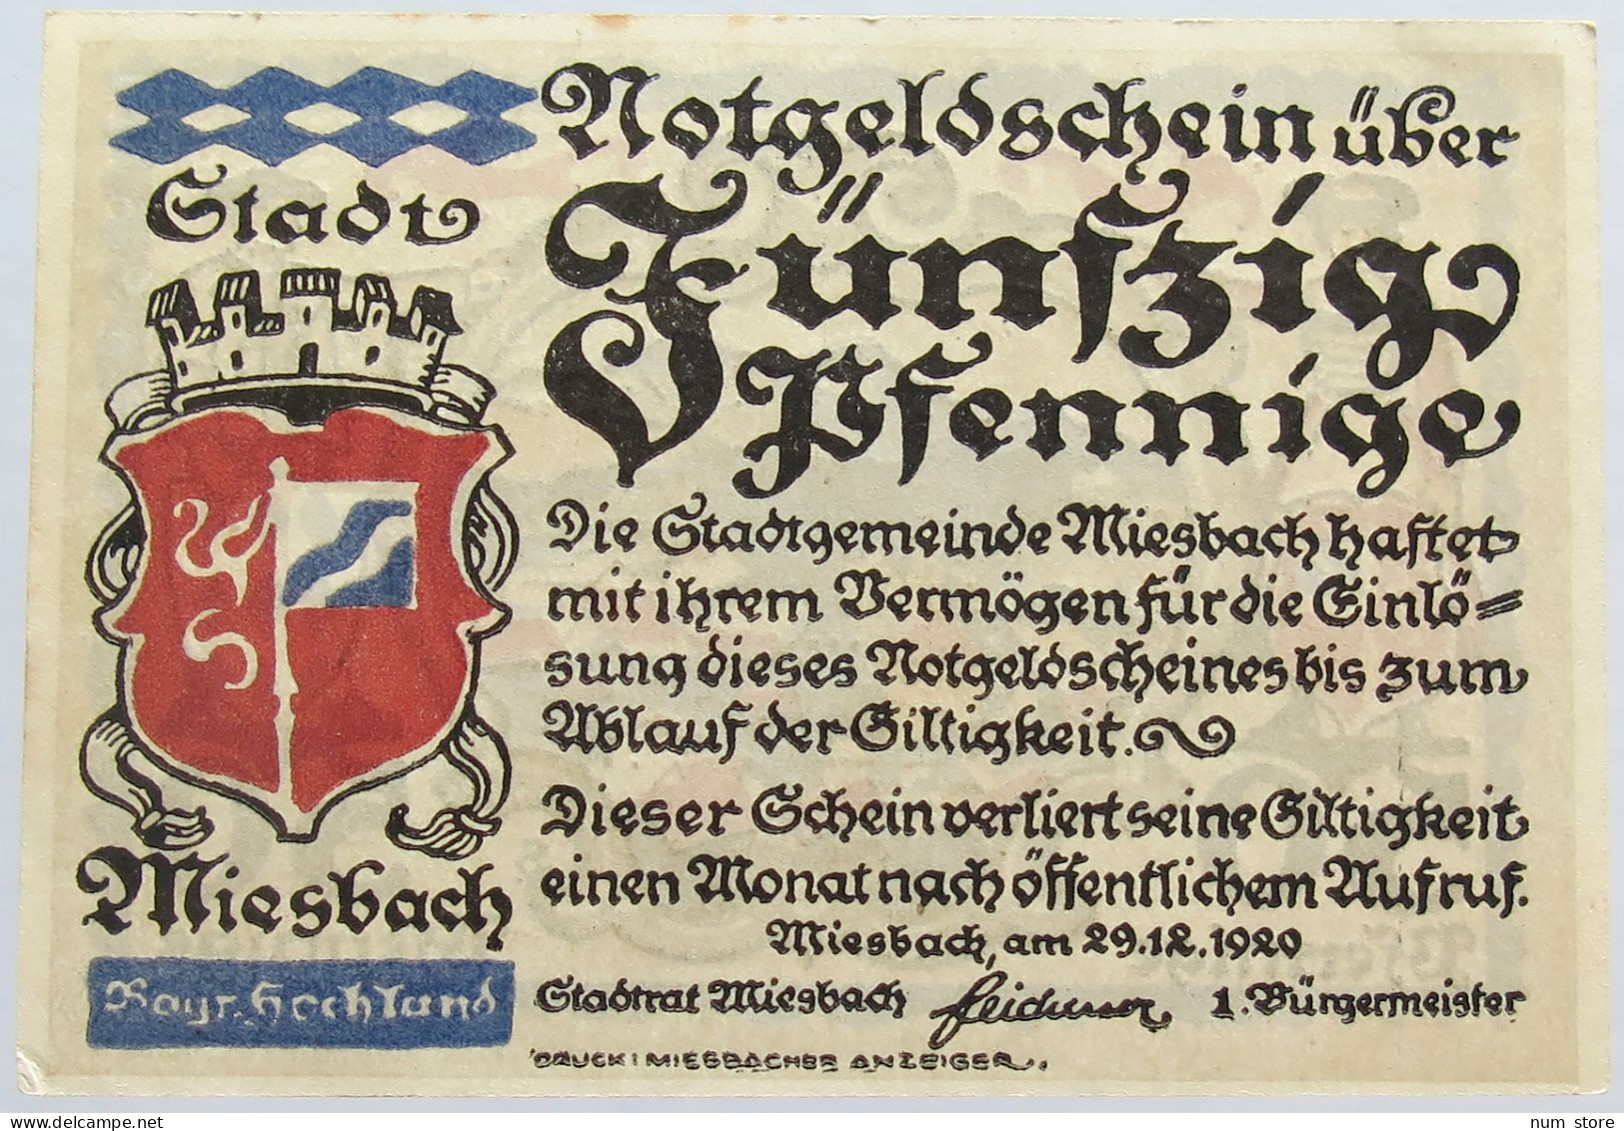 Stadt
Miesbach
Bayr. Hochland
Notgeldschein über
Fünfzig
Pfennige
Die Stadtgemeinde Miesbach haftet
mit ihrem Vermögen für die Einlö=
sung dieses Notgeldscheines bis zum
Ablauf der Giltigkeit.
Dieser Schein verliert seine Giltigkeit
einen Monat nach öffentlichem Aufruf.
Miesbach, am 29.12.1920
Stadtrat Miesbach 1. Bürgermeister
DRUCK: MIESBACHER ANZEIGER.
num store